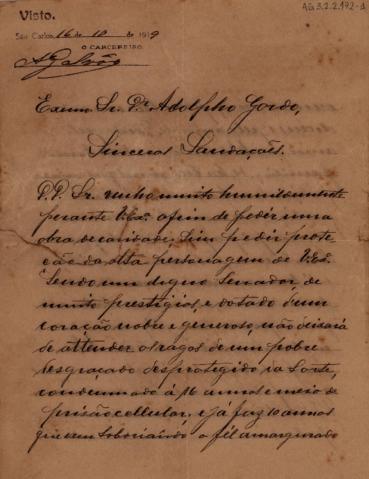 AG 3.2.2.192-d
Visto.
São Carlos, 16 de 10 de 1919
O CARCEREIRO
Exmo. Sr. Dr. Adolpho Gordo,
Sinceras Saudações.
P.P. Sr. venho muito humildemente
perante V. Exª. afim de pedir uma
obra de caridade, Sim pedir prote
cão da alta personagem de V. Exª.
Sendo um digno Senador, de
muito prestigio, e dotado d'um
coração nobre e generoso, não deixará
de attender os rogos de um pobre
desgraçado desprotegido da Sorte,
condemnado á 16 annos e meio de
prisão cellular. e já faz 10 annos
que vem soboriando o fél amargurado